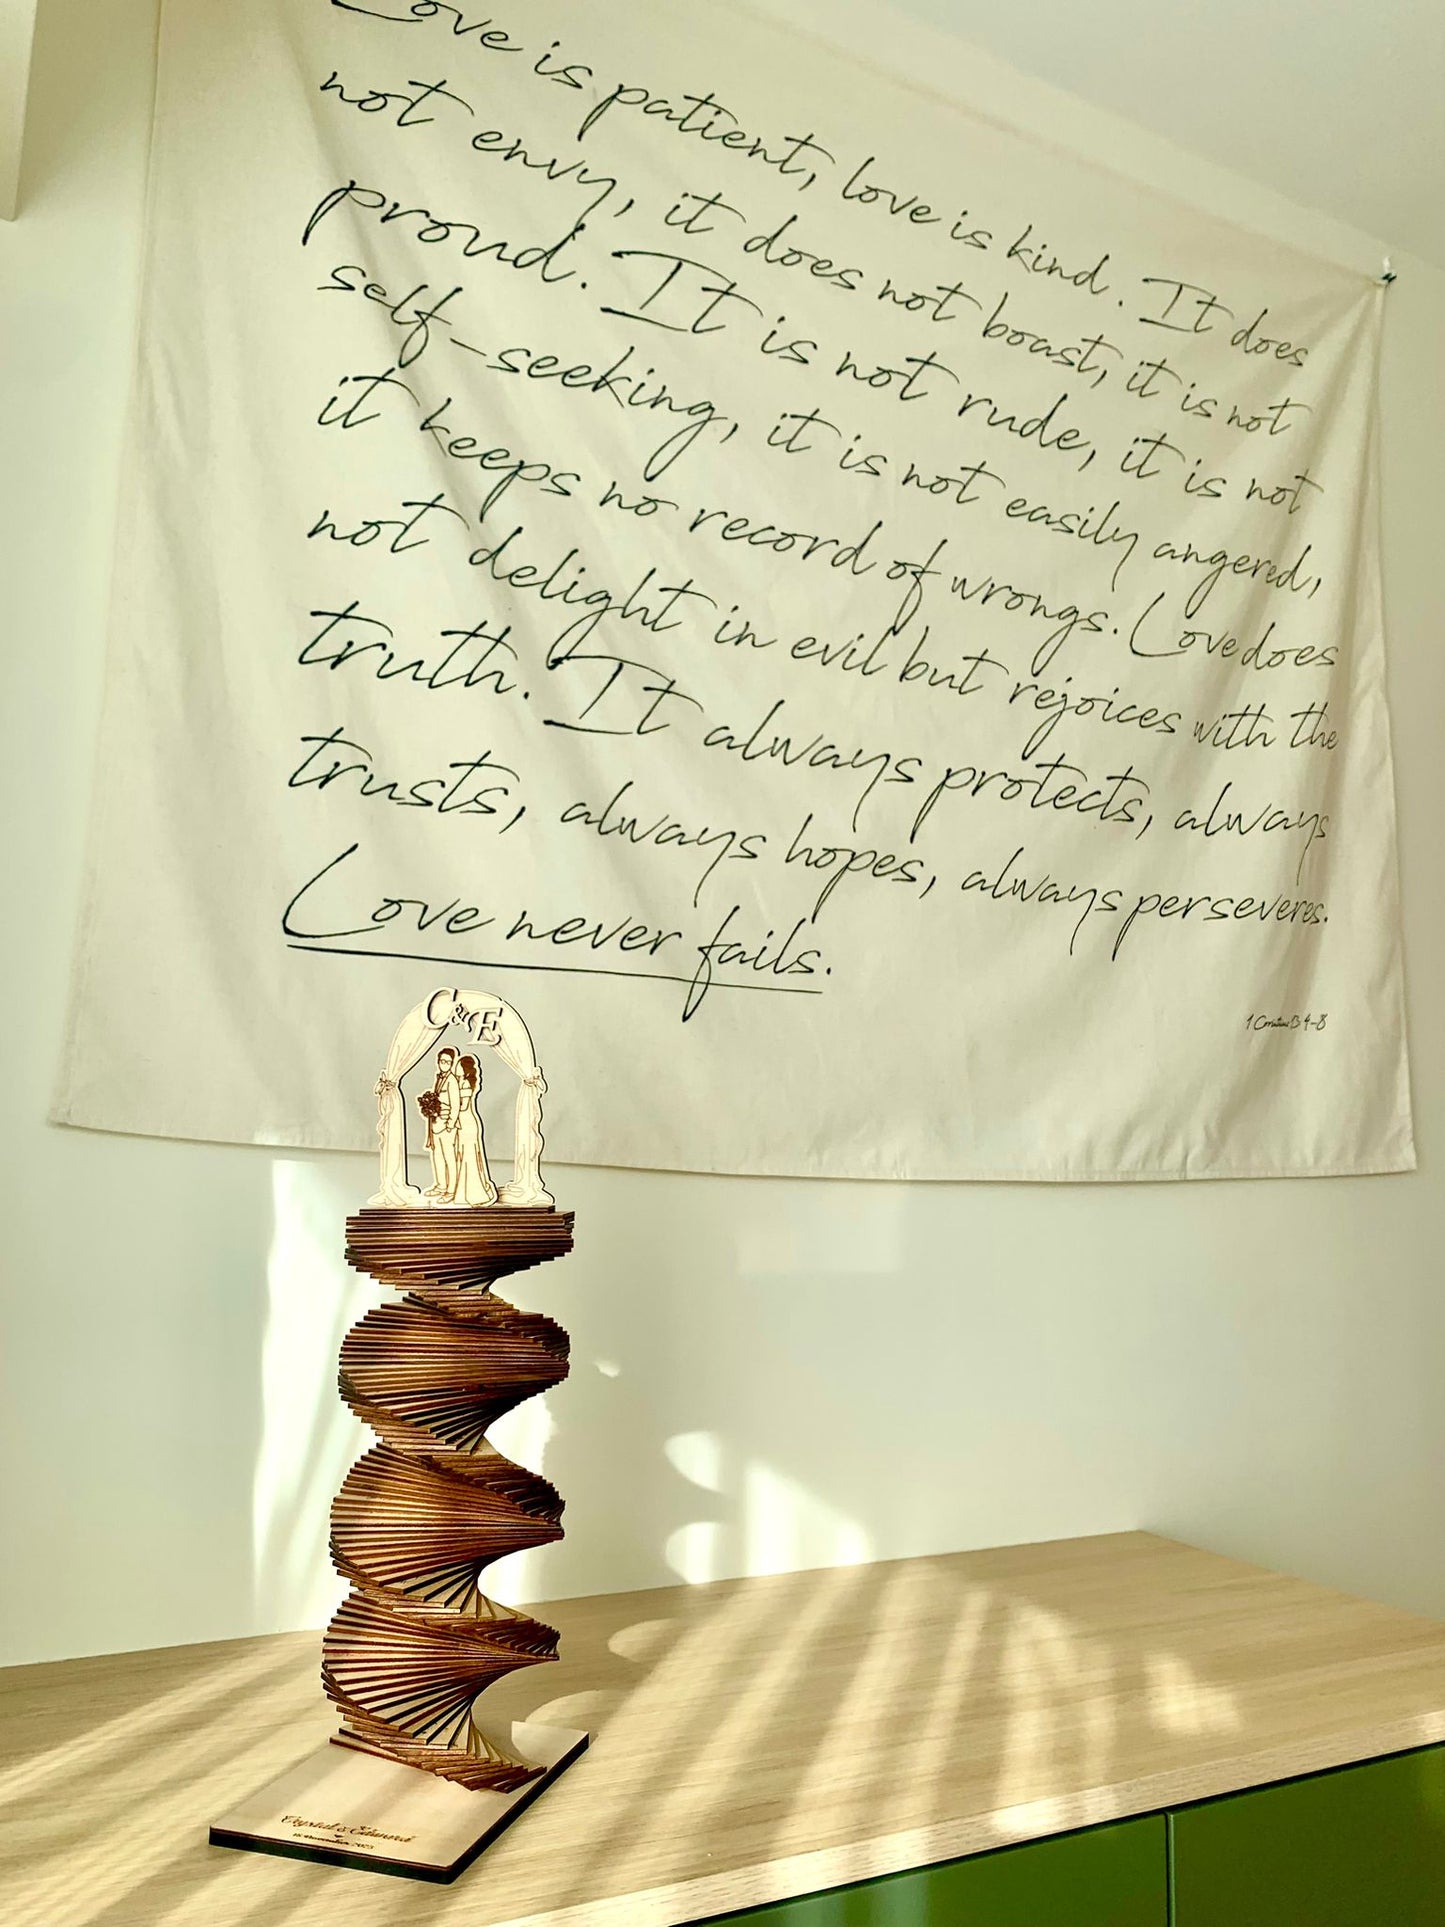 Love is patient, love is kind. It does
not envy, it does not boast, it is not
proud. It is not rude, it is not
self-seeking, it is not easily angered,
it keeps no record of wrongs. Love does
not delight in evil but rejoices with the
truth. It always protects, always
trusts, always hopes, always perseveres.
Love never fails.
1 Corintians 13 4-8
C&E
Crystal & Edward